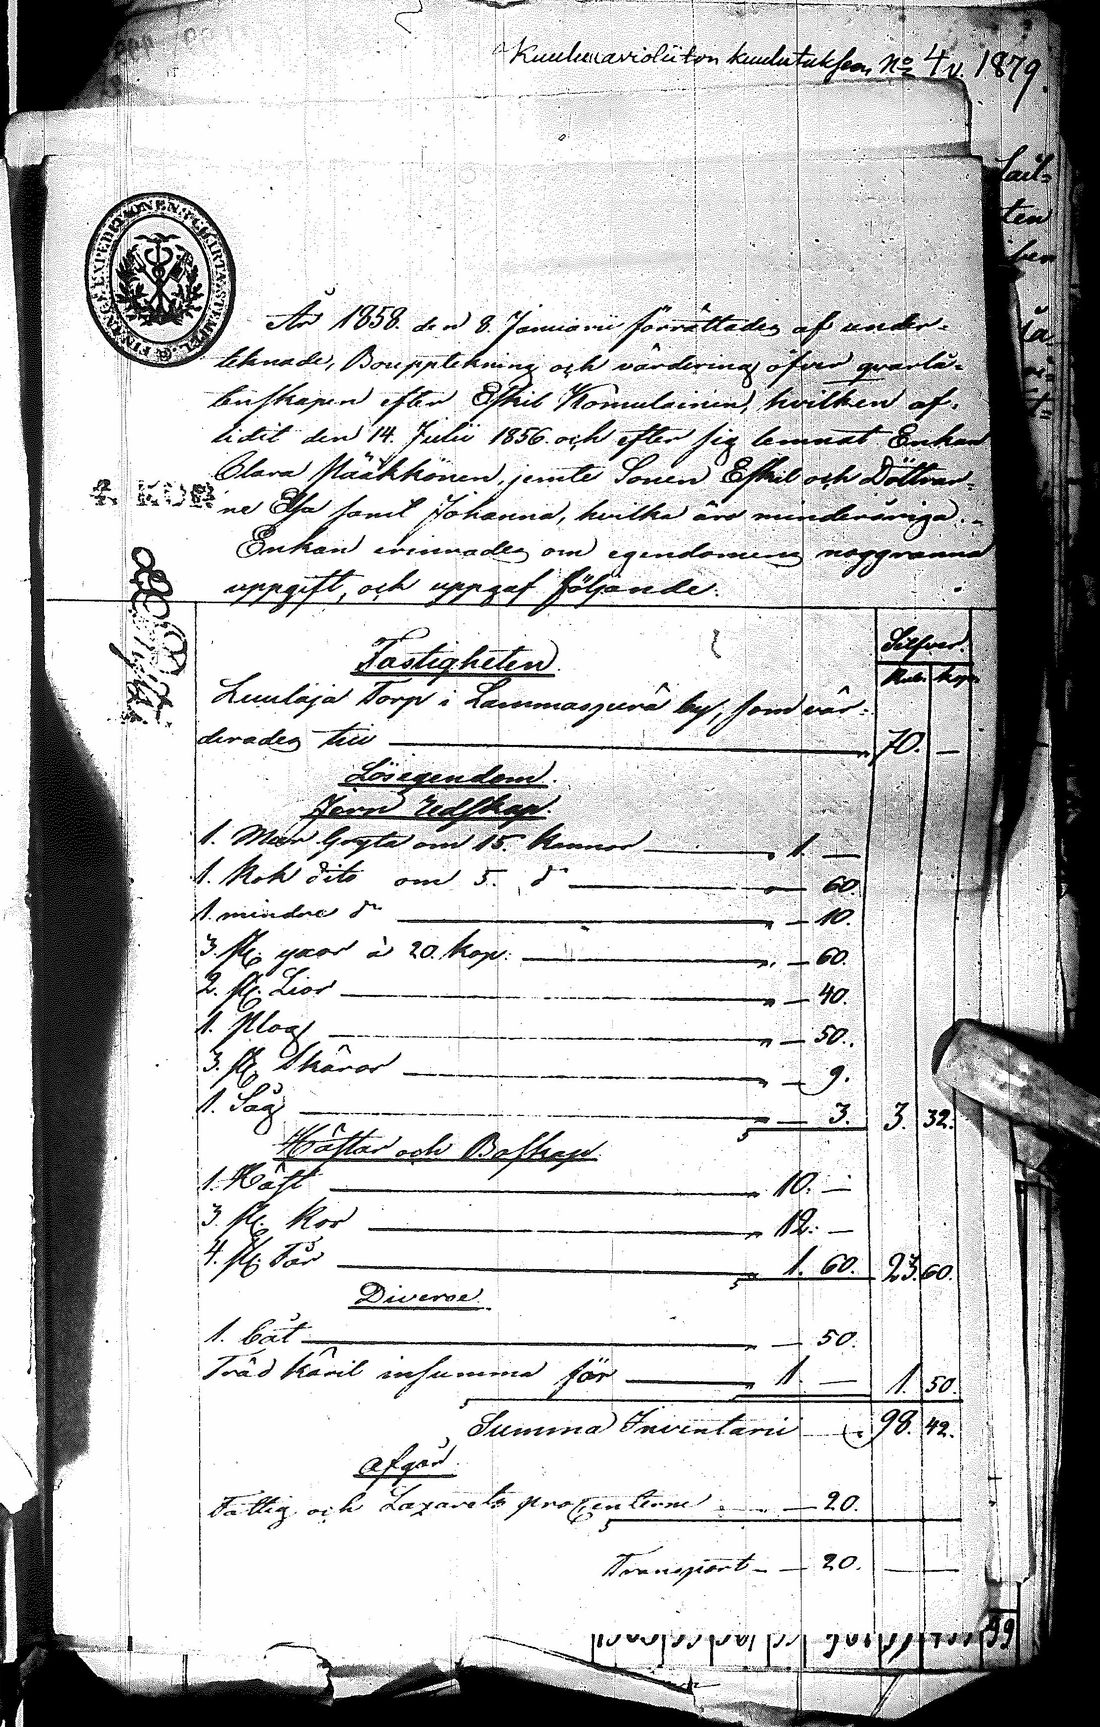 Kuulutuksen No 4 v. 1879.
FINANCE EXPEDITIONENS CHARTÆ STEMPEL
År 1858. den 8. Januarii förrättades af under-
teknade, Bouppteckning och värdering öfver qvarlå-
tenskapen efter Eskil Komulainen, hvilken af-
lidit den 14. Julii 1856 och efter sig lemnat Enkan
Clara Pääkkönen, jemte Sonen Eskil och Döttrar-
ne Elsa samt Johanna, hvilka äro minderåriga.-
4 KOP
Enkan erinrades om egendomens noggranna
uppgift, och uppgaf följande:
Silfver.
Rub. kop.
Fastigheten.
Luulaja Torp i Lammasperä by, som vär-
derades till 70. —
Lösegendom.
Jern Redskap.
1. Mur Gryta om 15. kannor " 1. —
1. Kok dito om 5. do " — 60.
1. mindre do " — 10.
3. st. yxor à 20. kop. " — 60.
2. st. Lior " — 40.
1. Plog " — 50.
3. st. Skäror " — 9.
1. Såg " — 3. 3. 32.
Hästar och Boskap.
1. Häst " 10. —
3. st. Kor " 12. —
4. st. Får " 1. 60. 23. 60.
Diverse.
1. båt " — 50.
Träd käril insumma för " 1. — 1. 50.
Summa Inventarii 98. 42.
Afgår.
Fattig och Lazaretts procenterne — 20.
Transport — — 20. —
99